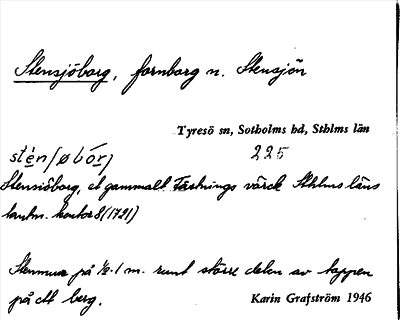 Stensjöborg, fornborg n. Stensjön
Tyresö sn, Sotholms hd, Sthlms län
225
Stensiöborg, et gammalt Fästnings värck Sthlms läns
lantm. kontor 8 (1721)
Stenmur på ½-1 m. runt större delen av toppen
på ett berg.
Karin Grafström 1946